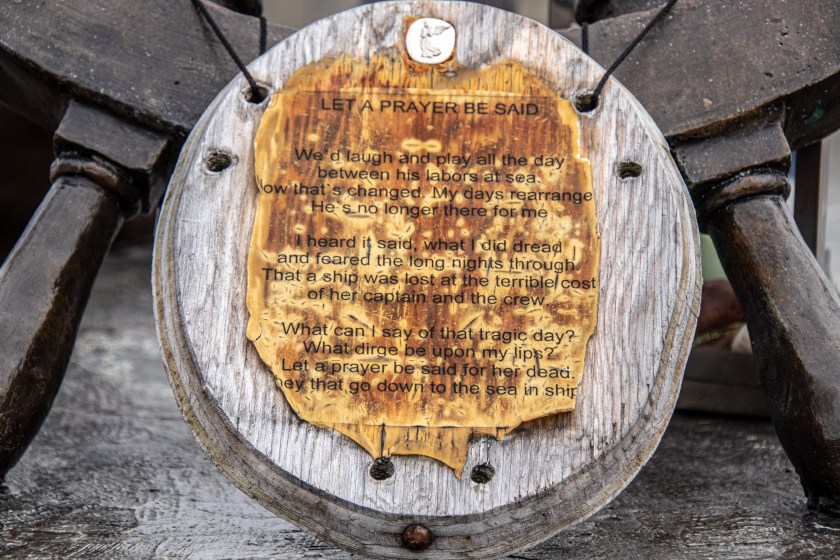 LET A PRAYER BE SAID
We'd laugh and play all the day
between his labors at sea.
ow that's changed. My days rearrange
He's no longer there for me
I heard it said, what I did dread
and feared the long nights through
That a ship was lost at the terrible cost
of her captain and the crew.
What can I say of that tragic day?
What dirge be upon my lips?
Let a prayer be said for her dead
ey that go down to the sea in ship